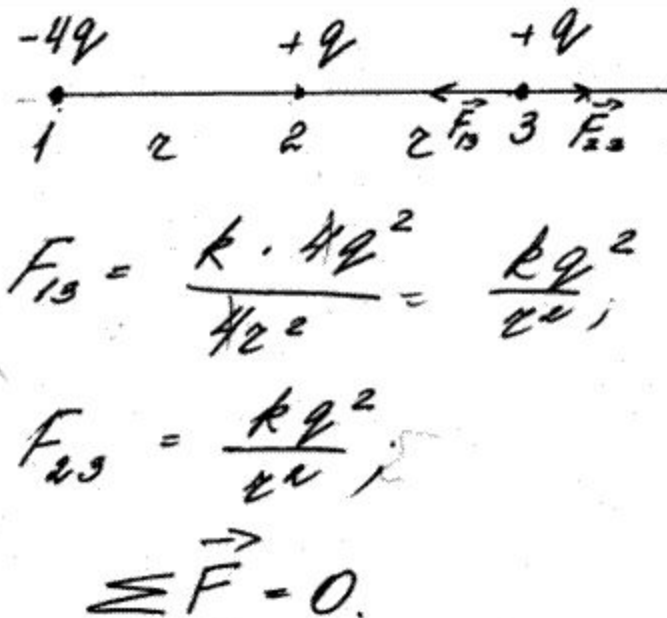 -4q +q +q
1 r 2 r F₁₃ 3 F₂₃
F₁₃ = k · 4q² / 4r² = kq² / r²,
F₂₃ = kq² / r²;
ΣF = 0.